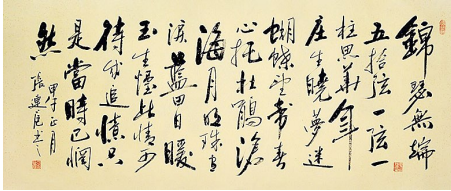 錦瑟無端
五拾弦一弦一
柱思華年
庄生曉夢迷
蝴蝶望帝春
心托杜鵑滄
海月明珠有
淚藍田日暖
玉生煙此情可
待成追憶只
是當時已惘
然
甲午正月